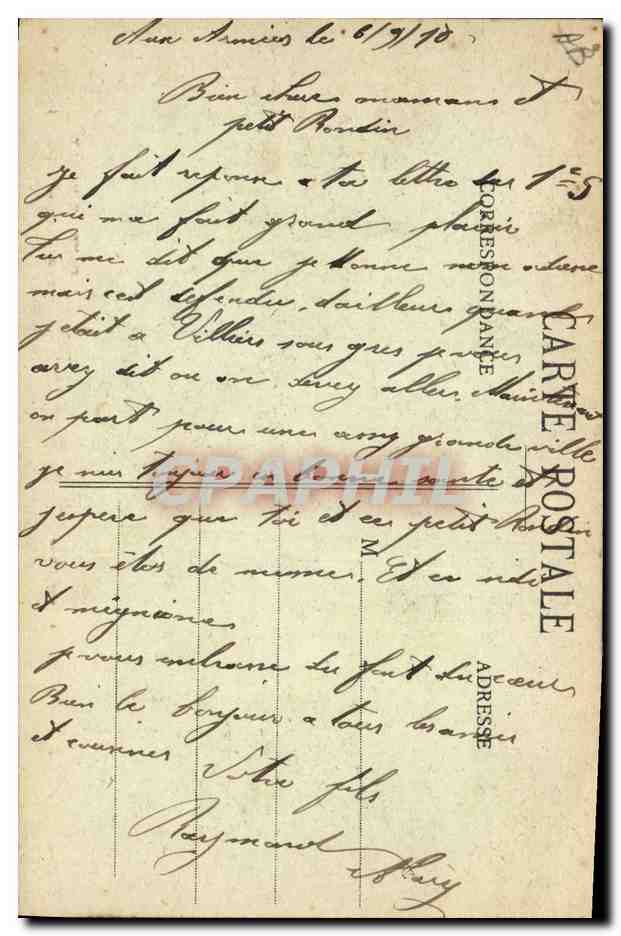 Aux Armées le 6/9/18
Bien chers mamans et
petit Rondin
je fait repons a ta lettre du 1er 9
qui ma fait grand plaisir
tu me dit que je donne mon adresse
mais cest defendu. dailleurs quand
jetait a Villiers sous gres je vous
avez dit ou on devez aller. Maintenant
on part pour une assez grande ville
je suis toujour en bonne sante et
jespere que toi et ce petit Rondin
vous êtes de meme. Et
et
je vous embrasse du fort du cœur
Bien le bonjour a tous les amis
et cousines
Votre fils
Raymond
CORRESPONDANCE
CARTE POSTALE
M
ADRESSE
CPAPHIL
AB